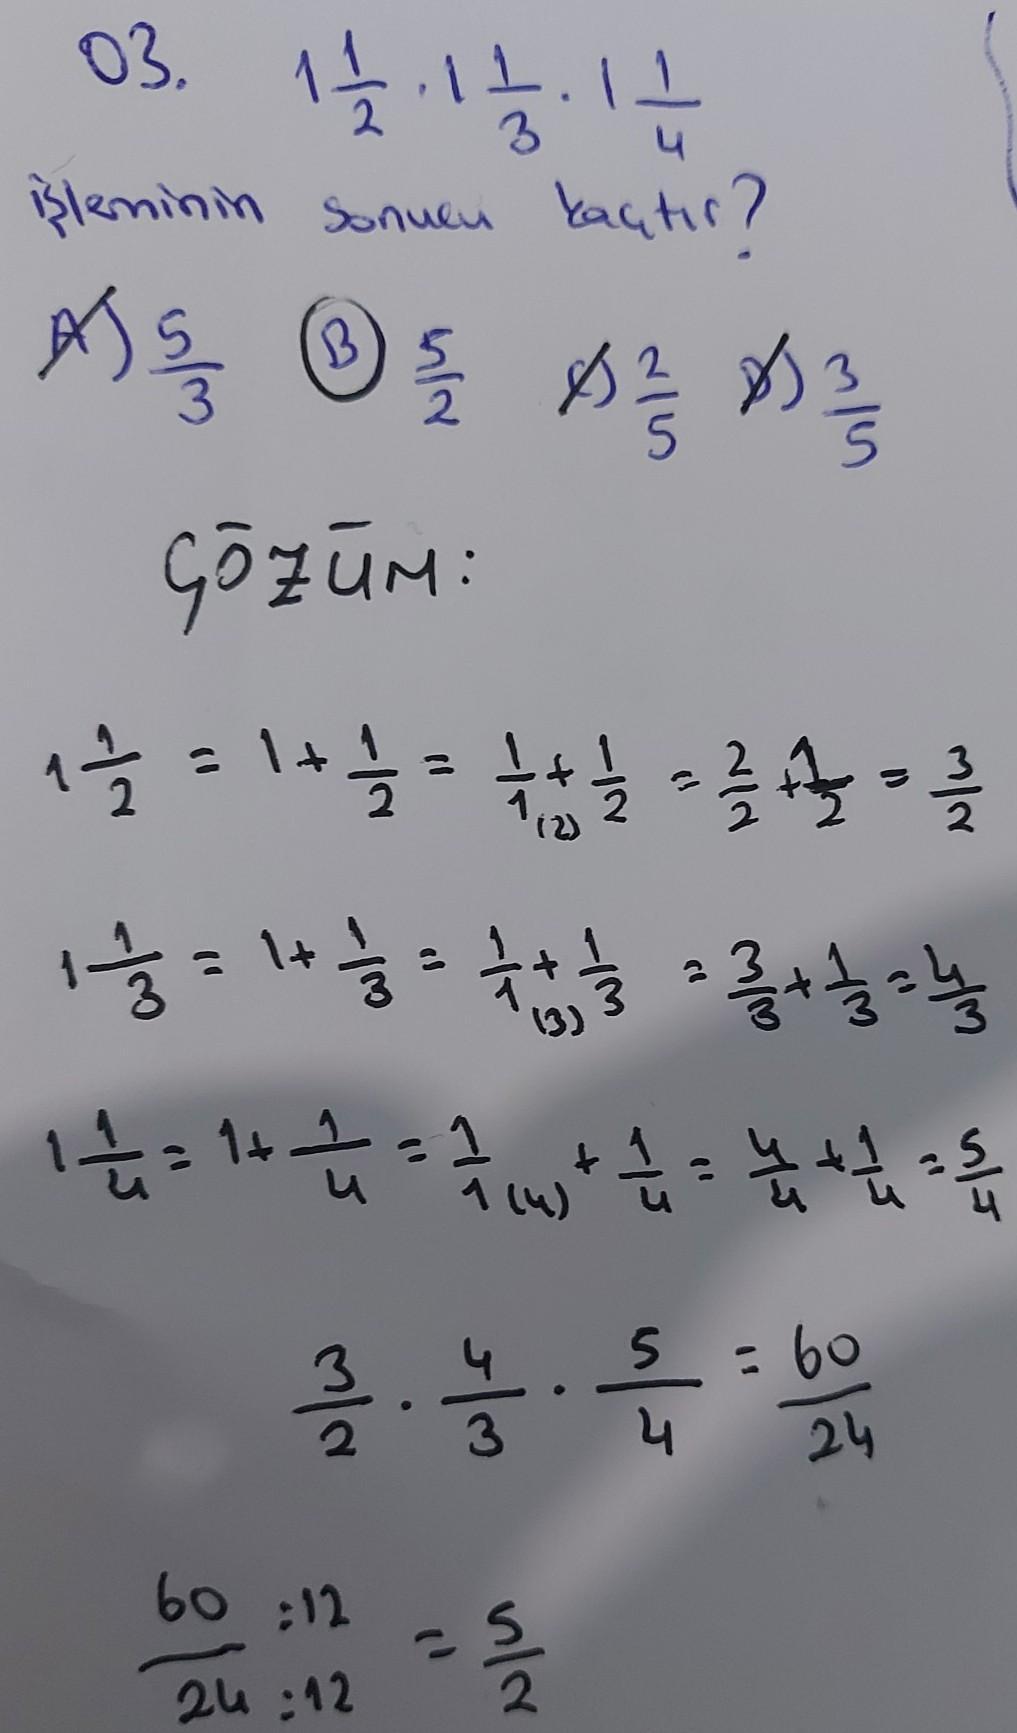 03. 1 1/2 . 1 1/3 . 1 1/4
işleminin sonucu kaçtır?
A) 5/3 B) 5/2 C) 2/5 D) 3/5
ÇÖZÜM:
1 1/2 = 1 + 1/2 = 1/1 (2) + 1/2 = 2/2 + 1/2 = 3/2
1 1/3 = 1 + 1/3 = 1/1 (3) + 1/3 = 3/3 + 1/3 = 4/3
1 1/4 = 1 + 1/4 = 1/1 (4) + 1/4 = 4/4 + 1/4 = 5/4
3/2 . 4/3 . 5/4 = 60/24
60 :12 / 24 :12 = 5/2